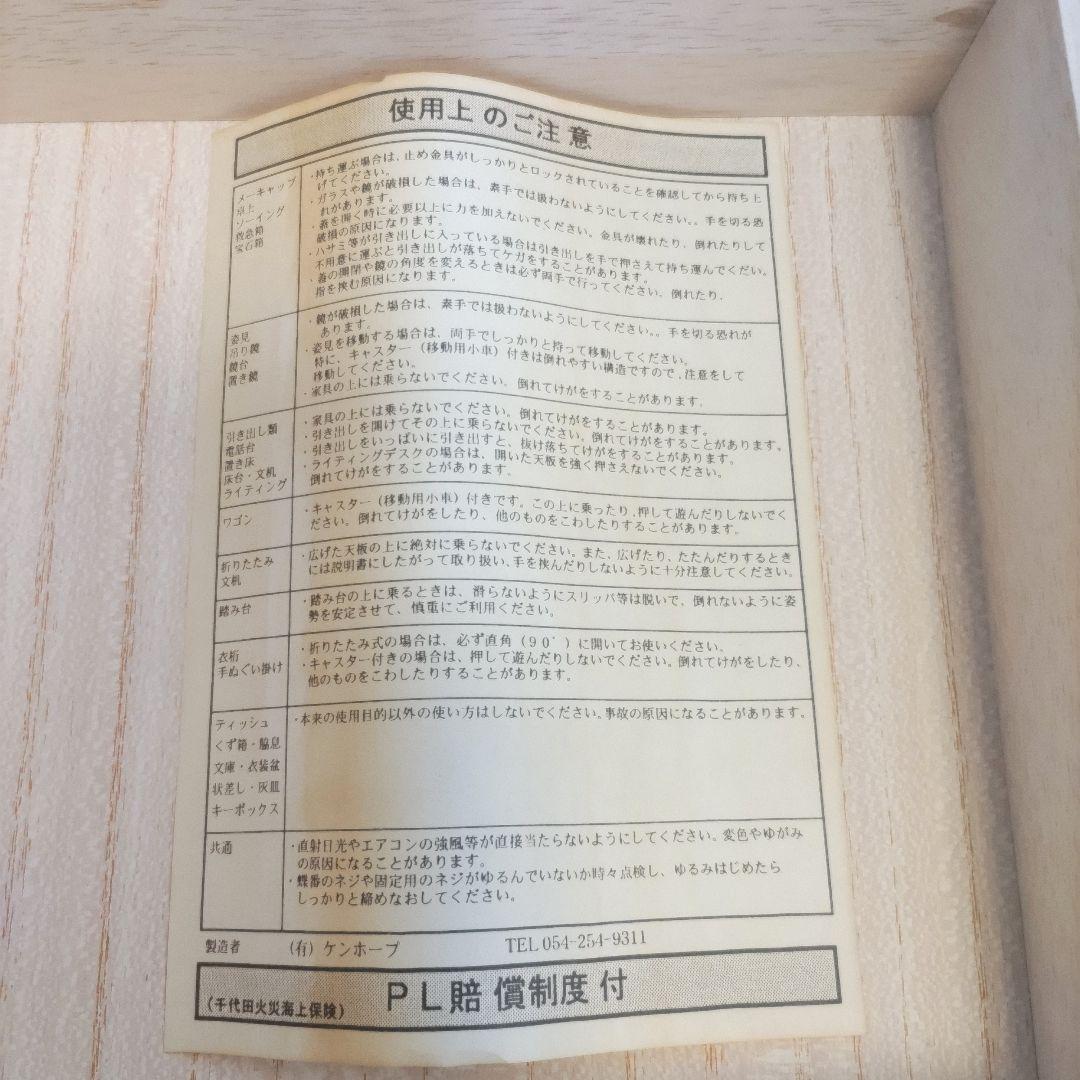 使用上のご注意
メーキャップ
卓上
ソーイング
救急箱
宝石箱
・持ち運ぶ場合は、止め金具がしっかりとロックされていることを確認してから持ち上
げてください。
・ガラスや鏡が破損した場合は、素手では扱わないようにしてください。。手を切る恐
れがあります。
・蓋を開く時に必要以上に力を加えないでください。金具が壊れたり、倒れたりして
破損の原因になります。
・ハサミ等が引き出しに入っている場合は引き出しを手で押さえて持ち運んでくだい。
不用意に運ぶと引き出しが落ちてケガをすることがあります。
・蓋の開閉や鏡の角度を変えるときは必ず両手で行ってください。倒れたり、
指を挟む原因になります。
姿見
吊り鏡
鏡台
置き鏡
・鏡が破損した場合は、素手では扱わないようにしてください。。手を切る恐れが
あります。
・姿見を移動する場合は、両手でしっかりと持って移動してください。
特に、キャスター（移動用小車）付きは倒れやすい構造ですので、注意をして
移動してください。
・家具の上には乗らないでください。倒れてけがをすることがあります。
引き出し類
電話台
置き床
床台・文机
ライティング
・家具の上には乗らないでください。倒れてけがをすることがあります。
・引き出しを開けてその上に乗らないでください。倒れてけがをすることがあります。
・引き出しをいっぱいに引き出すと、抜け落ちてけがをすることがあります。
・ライティングデスクの場合は、開いた天板を強く押さえないでください。
倒れてけがをすることがあります。
ワゴン
・キャスター（移動用小車）付きです。この上に乗ったり、押して遊んだりしないでく
ださい。倒れてけがをしたり、他のものをこわしたりすることがあります。
折りたたみ
文机
・広げた天板の上に絶対に乗らないでください。また、広げたり、たたんだりするとき
には説明書にしたがって取り扱い、手を挟んだりしないように十分注意してください。
踏み台
・踏み台の上に乗るときは、滑らないようにスリッパ等は脱いで、倒れないように姿
勢を安定させて、慎重にご利用ください。
衣桁
手ぬぐい掛け
・折りたたみ式の場合は、必ず直角（９０゜）に開いてお使いください。
・キャスター付きの場合は、押して遊んだりしないでください。倒れてけがをしたり、
他のものをこわしたりすることがあります。
ティッシュ
くず箱・脇息
文庫・衣装盆
状差し・灰皿
キーボックス
・本来の使用目的以外の使い方はしないでください。事故の原因になることがあります。
共通
・直射日光やエアコンの強風等が直接当たらないようにしてください。変色やゆがみ
の原因になることがあります。
・蝶番のネジや固定用のネジがゆるんでいないか時々点検し、ゆるみはじめたら
しっかりと締めなおしてください。
製造者 （有）ケンホープ TEL 054-254-9311
（千代田火災海上保険） ＰＬ賠償制度付